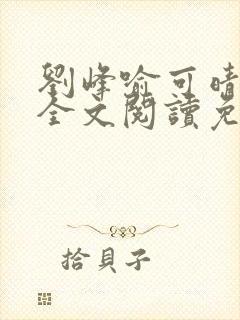 劉峰喻可晴
全文閱讀免
拾貝子